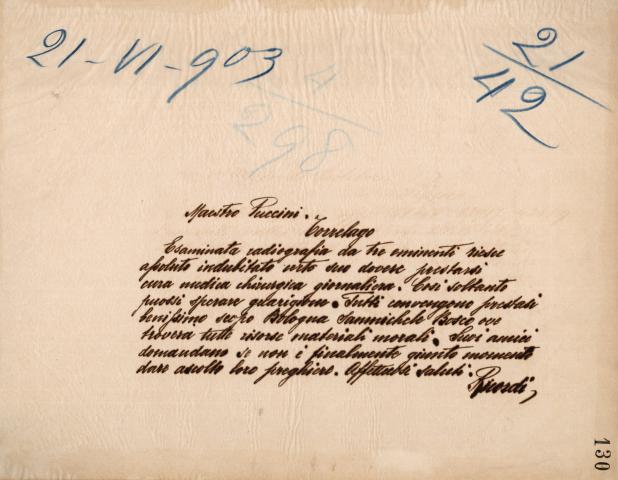 21-VI-903
21/42
4/298
Maestro Puccini.
Torrelago
Esaminata radiografia da tre eminenti riesce
assoluto indubitato suo dovere prestarsi
cura medica chirurgica giornaliera. Così soltanto
puossi sperare guarigione. Tutti convengono prestasi
benissimo Bologna Sanmichele Bosco ove
troverà tutte risorse materiali morali. Suoi amici
domandano se non è finalmente giunto momento
dare ascolto loro preghiere. Affettuosi saluti.
Ricordi
130